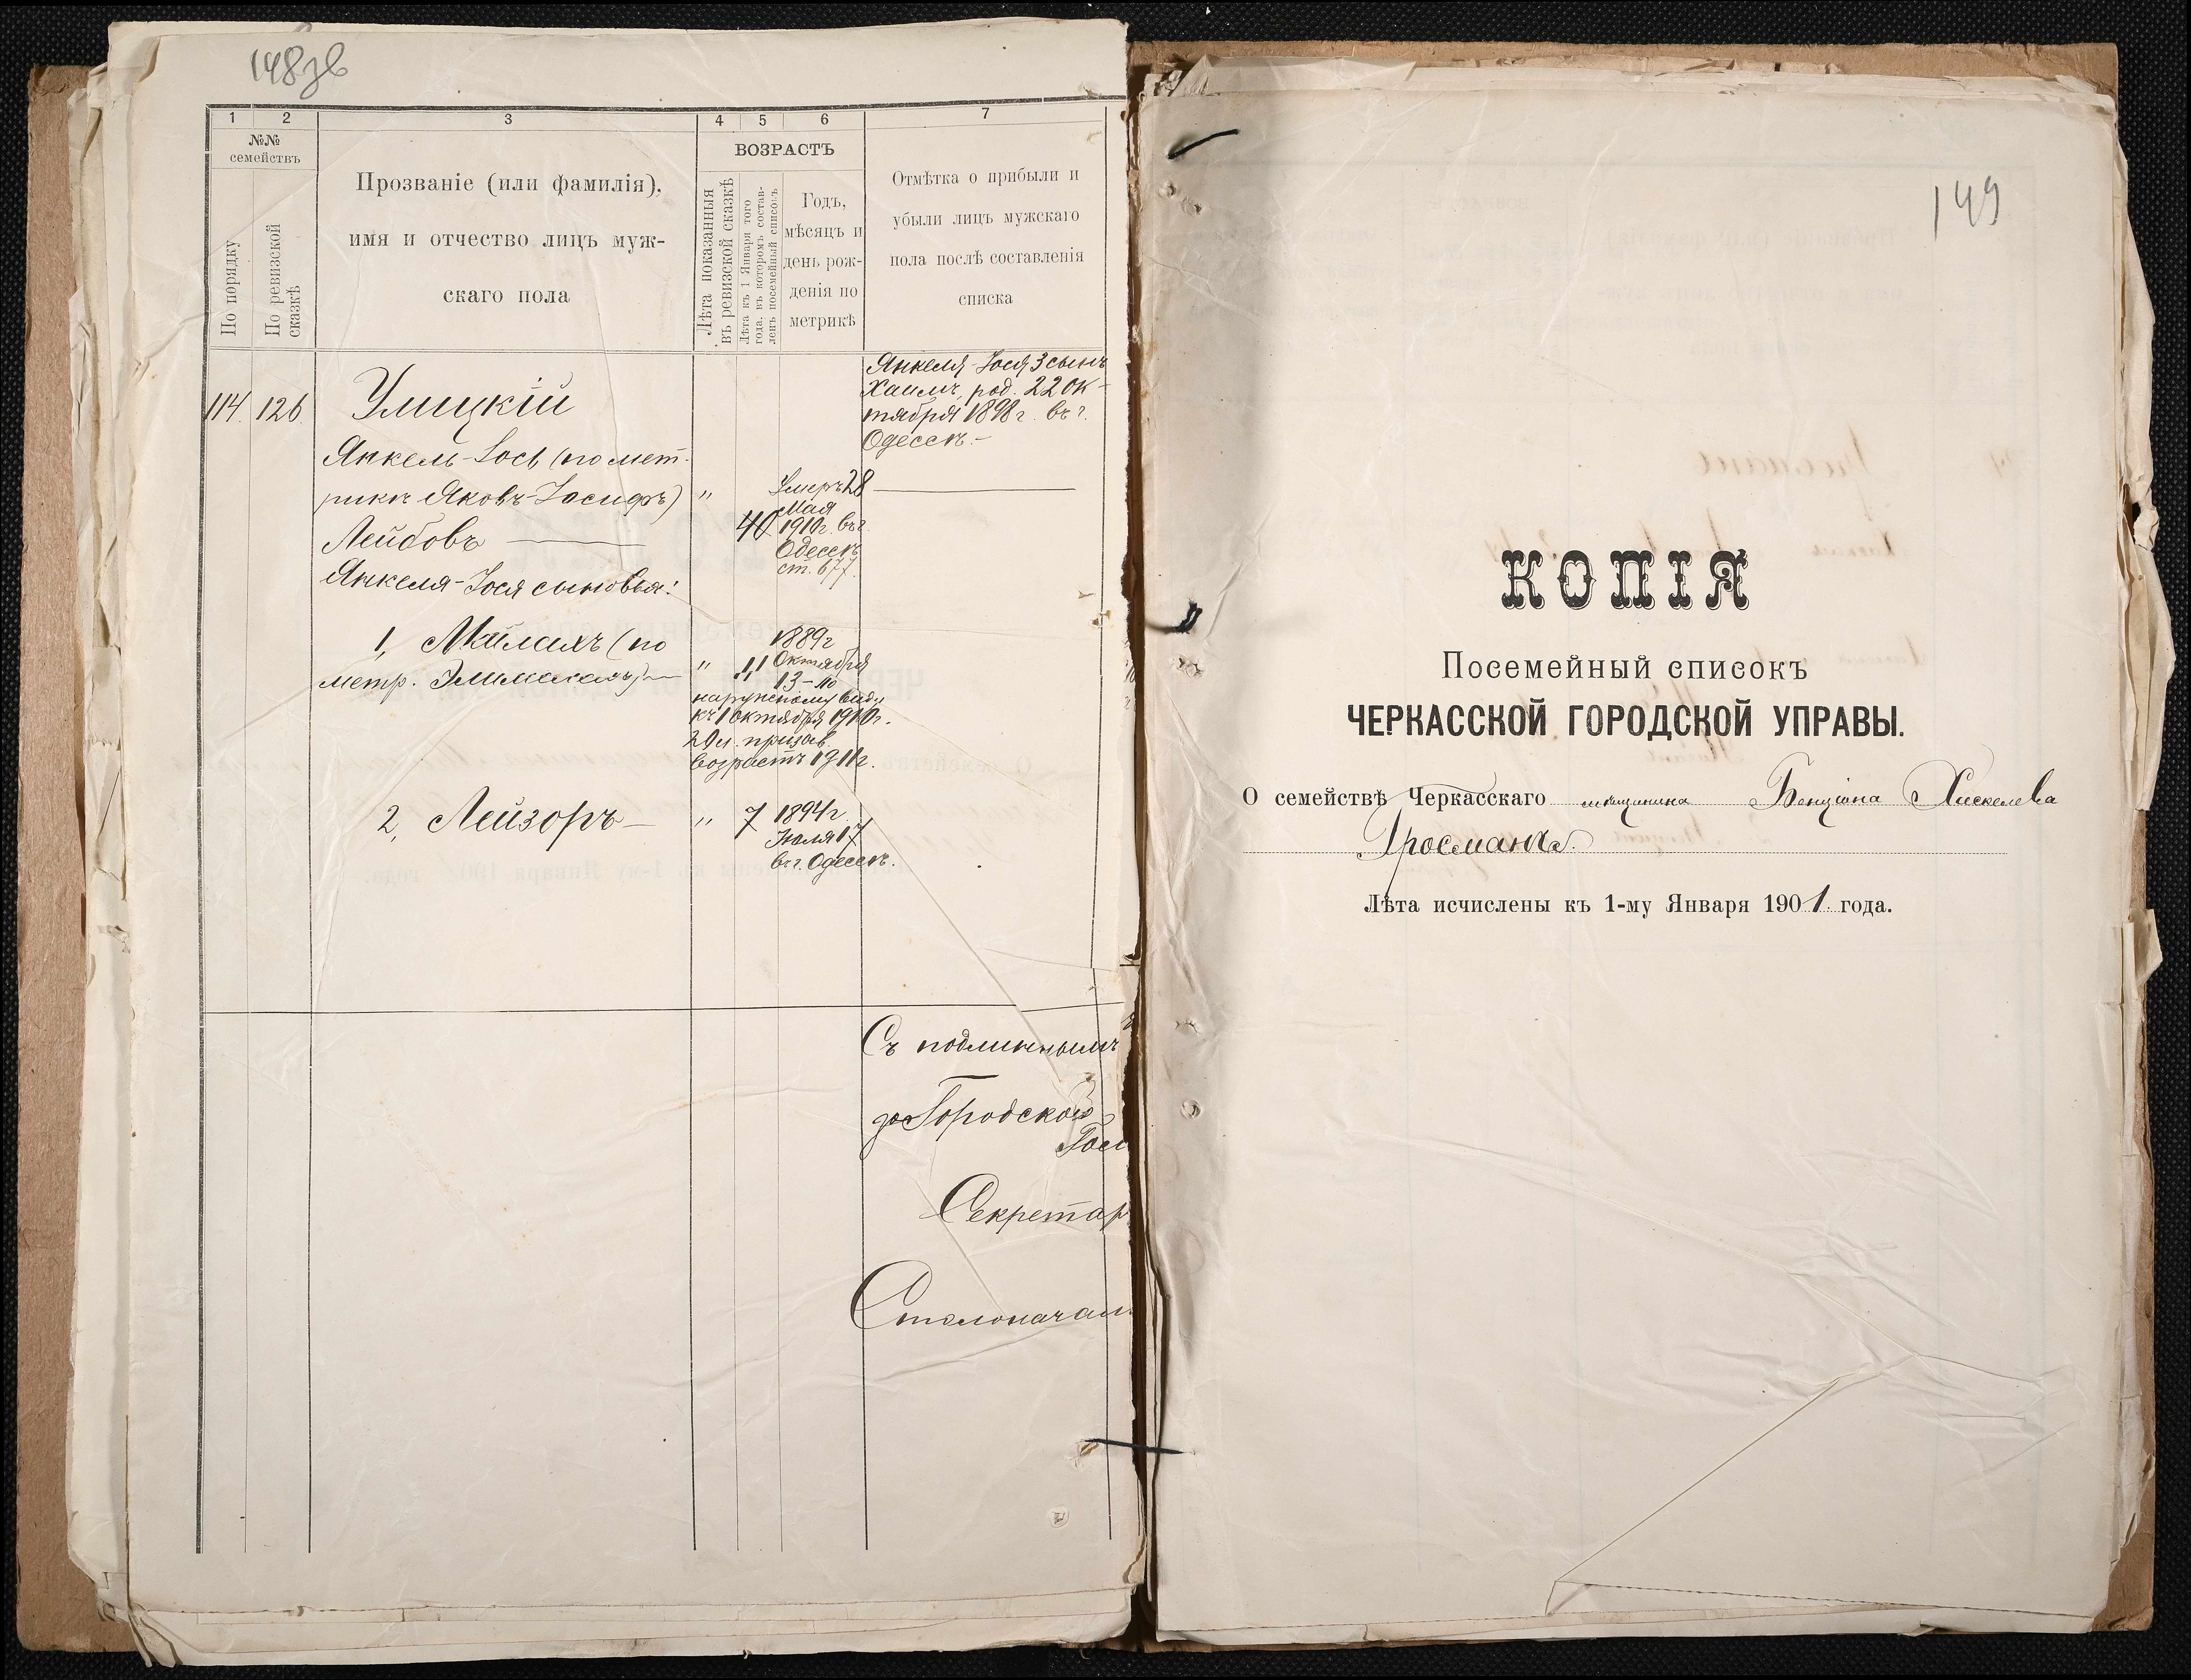 148зв
1 2 3 4 5 6 7
№№
семействъ
По порядку
По ревизской
сказкѣ
Прозваніе (или фамилія),
имя и отчество лицъ муж-
скаго пола
ВОЗРАСТЪ
Лѣта показанныя
въ ревизской сказкѣ
Лѣта къ 1 Января того
года, въ которомъ состав-
ленъ посемейный списокъ
Годъ,
мѣсяцъ и
день рож-
денія по
метрикѣ
Отмѣтка о прибыли и
убыли лицъ мужскаго
пола послѣ составленія
списка
114. 126.
Улицкій
Янкель-Іось (по мет-
рикѣ Яковъ-Іосифъ)
Лейбовъ
"
40
Умеръ 28
Мая
1910г. въ г.
Одессѣ
ст. 677.
Янкеля-Іося 3 сынъ
Хаимъ, род. 22 Ок-
тября 1898 г. въ г.
Одессѣ.-
Янкеля-Іося сыновья:
1, Мейлахъ (по
метр. Элимелехъ)
" 11
1889г
Октября
13 - по
наружному виду
къ 1 октября 1910г.
20 л. призыв.
возрастъ 1911г.
2, Лейзоръ
" 7
1894г.
Іюля 17
въ г. Одессѣ.
Съ подлиннымъ
за Городского
Секретар
Столоначал
149
КОПІЯ
Посемейный списокъ
ЧЕРКАССКОЙ ГОРОДСКОЙ УПРАВЫ.
О семействѣ Черкасскаго мѣщанина Бенціона Хаскелева
Гросмана.
Лѣта исчислены къ 1-му Января 1901 года.